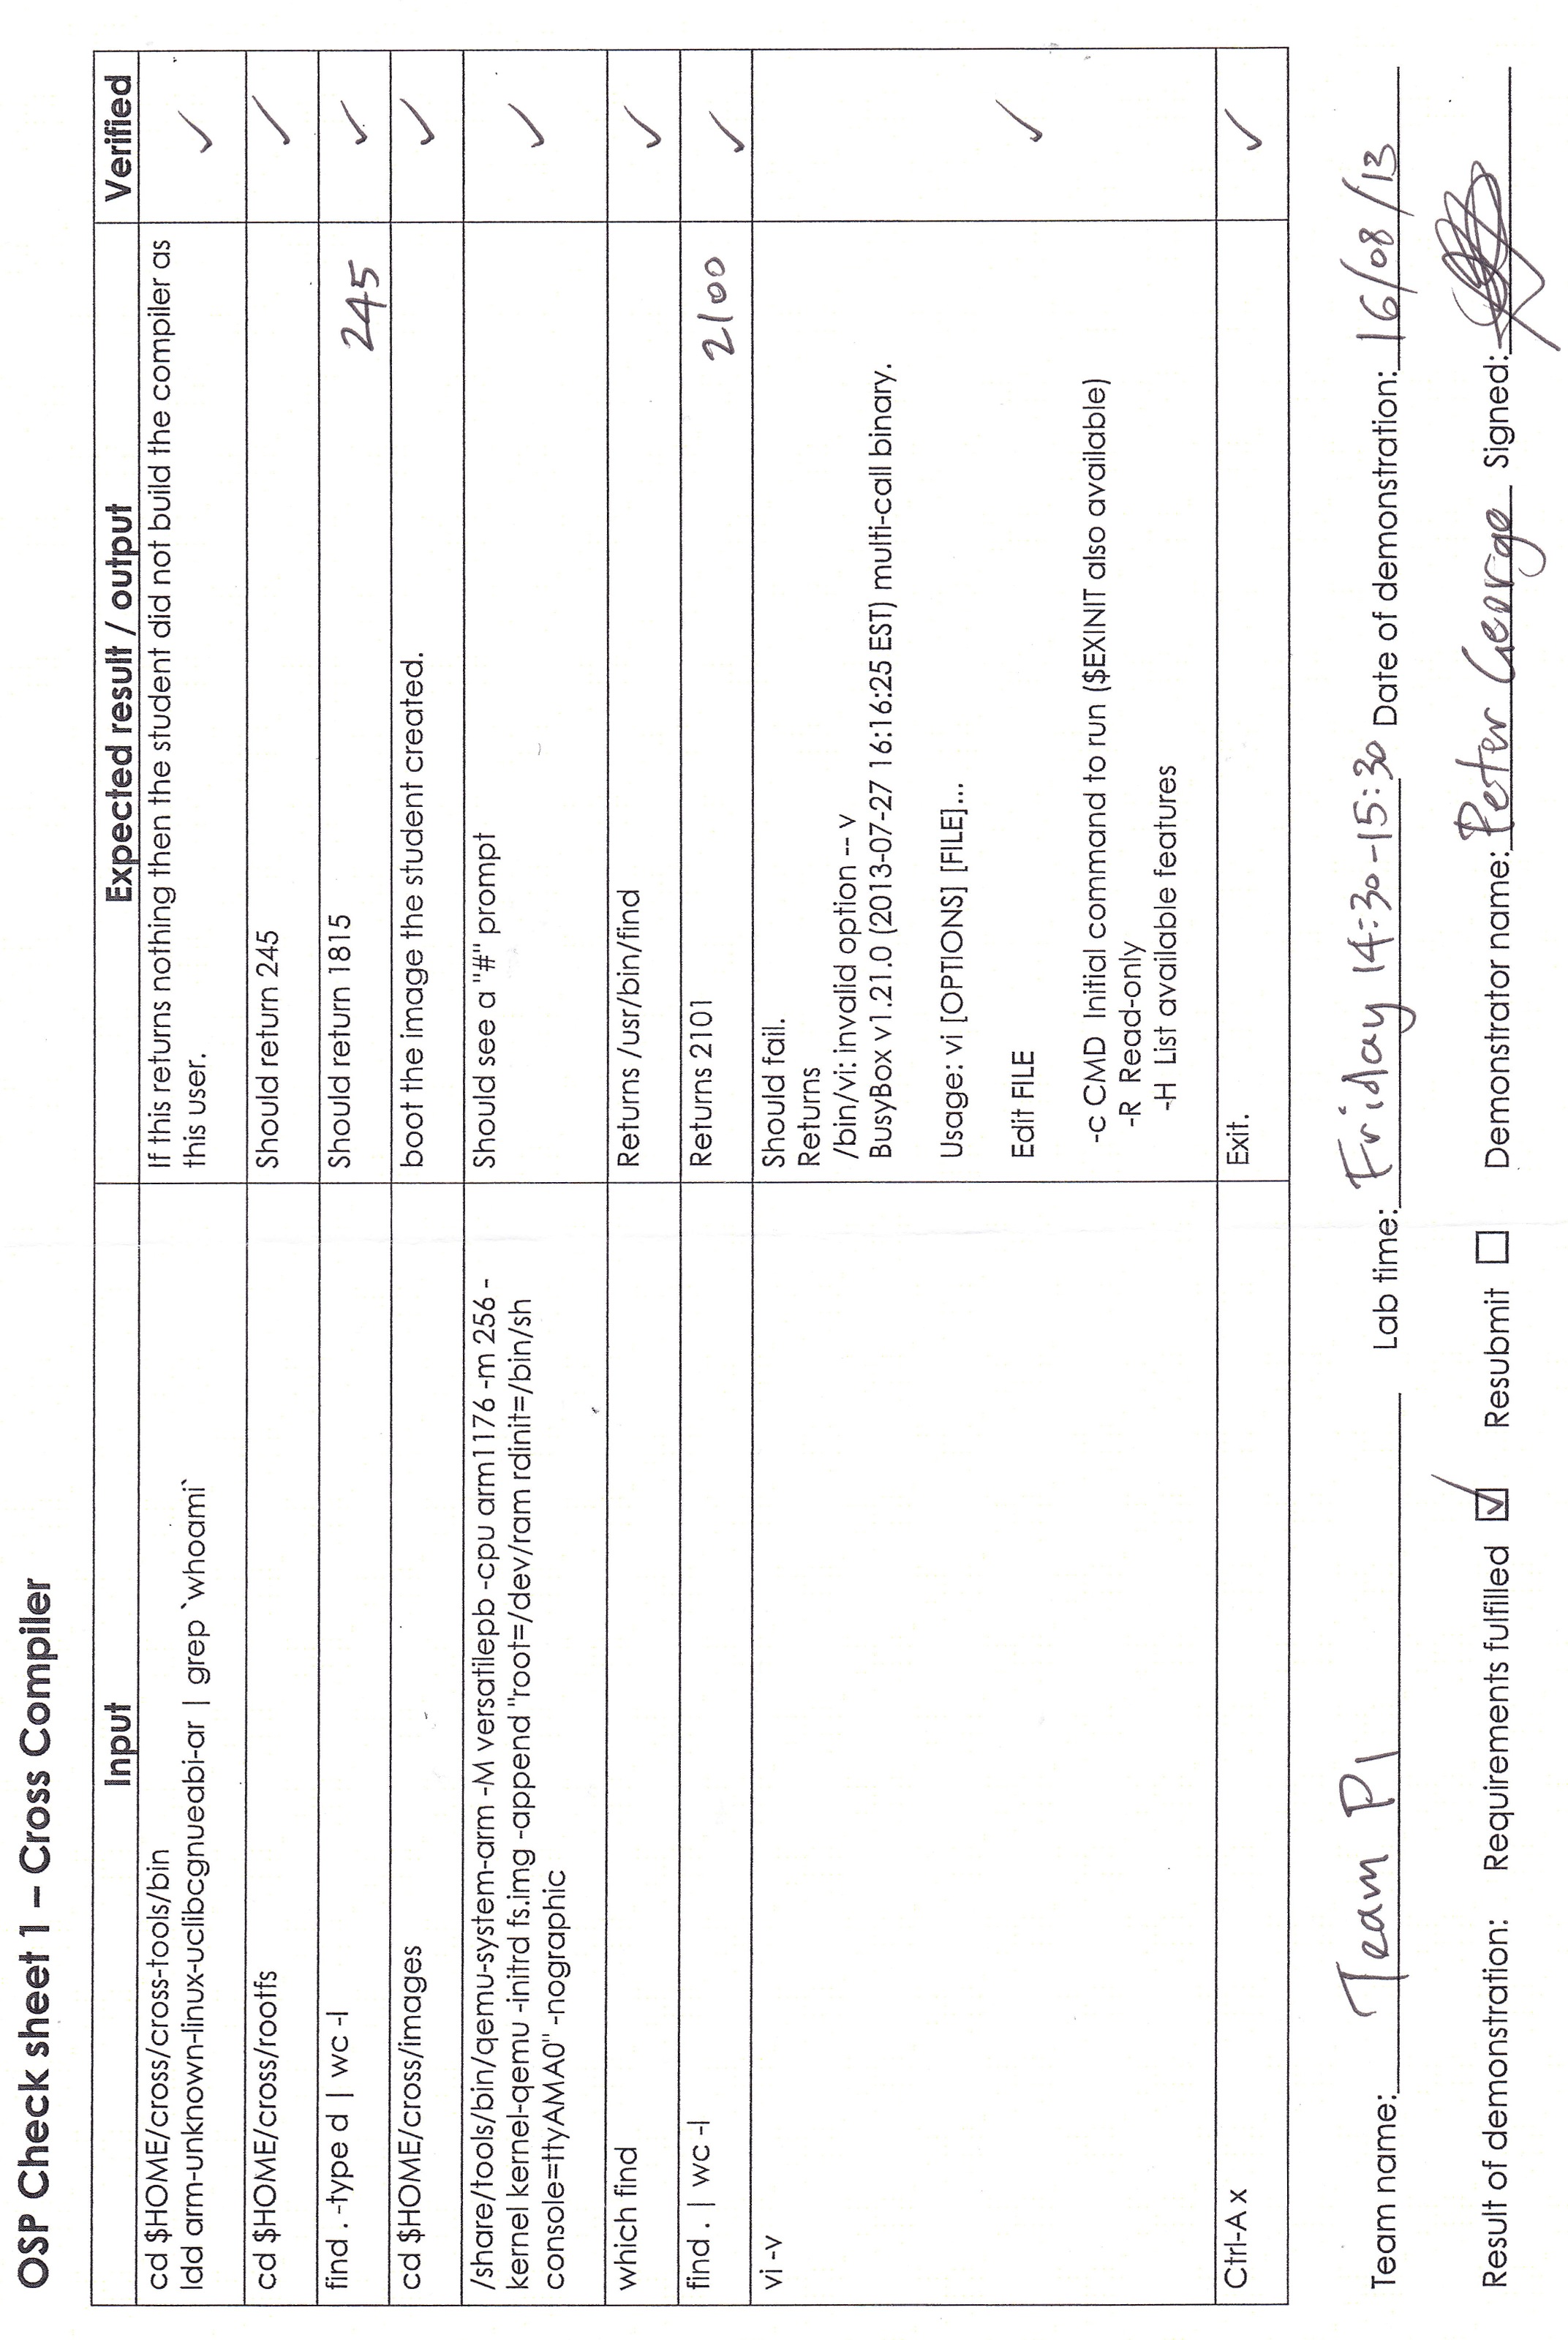 OSP Check sheet 1 – Cross Compiler
Input
Expected result / output
Verified
cd $HOME/cross/cross-tools/bin
ldd arm-unknown-linux-uclibcgnueabi-ar | grep `whoami`
If this returns nothing then the student did not build the compiler as
this user.
✓
cd $HOME/cross/rootfs
Should return 245
✓
find . -type d | wc -l
Should return 1815
245
✓
cd $HOME/cross/images
boot the image the student created.
✓
/share/tools/bin/qemu-system-arm -M versatilepb -cpu arm1176 -m 256 -
kernel kernel-qemu -initrd fs.img -append "root=/dev/ram rdinit=/bin/sh
console=ttyAMA0" -nographic
Should see a "#" prompt
✓
which find
Returns /usr/bin/find
✓
find . | wc -l
Returns 2101
2100
✓
vi -v
Should fail.
Returns
/bin/vi: invalid option -- v
BusyBox v1.21.0 (2013-07-27 16:16:25 EST) multi-call binary.
Usage: vi [OPTIONS] [FILE]...
Edit FILE
-c CMD Initial command to run ($EXINIT also available)
-R Read-only
-H List available features
✓
Ctrl-A x
Exit.
✓
Team name: Team PI Lab time: Friday 14:30-15:30 Date of demonstration: 16/08/13
Result of demonstration: Requirements fulfilled ☑ Resubmit ☐ Demonstrator name: Peter George Signed: